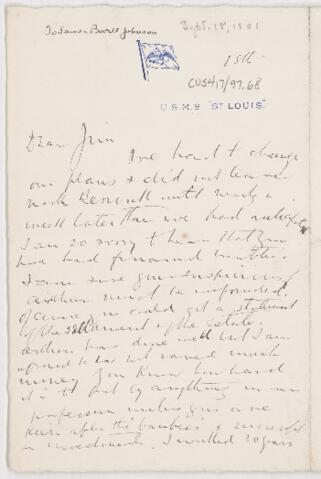 To James Burrell Johnson
Sept. 18, 1901
18th
CUS417/97.68
U.S.M.S "ST LOUIS"
Dear Jim
We had to change
our plans & did not leave
until nearly a
week later than we had
I am so sorry to hear that you
have had financial
I am sure your suspicions of
Arthur must be unfounded.
Of course you could get a statement
of the settlement of the estate.
Arthur has done well but I am
afraid he has not saved much
money You know how hard
it is to put by anything in our
profession unless you are
after the &amp; successful
in investments. I worked 20 years